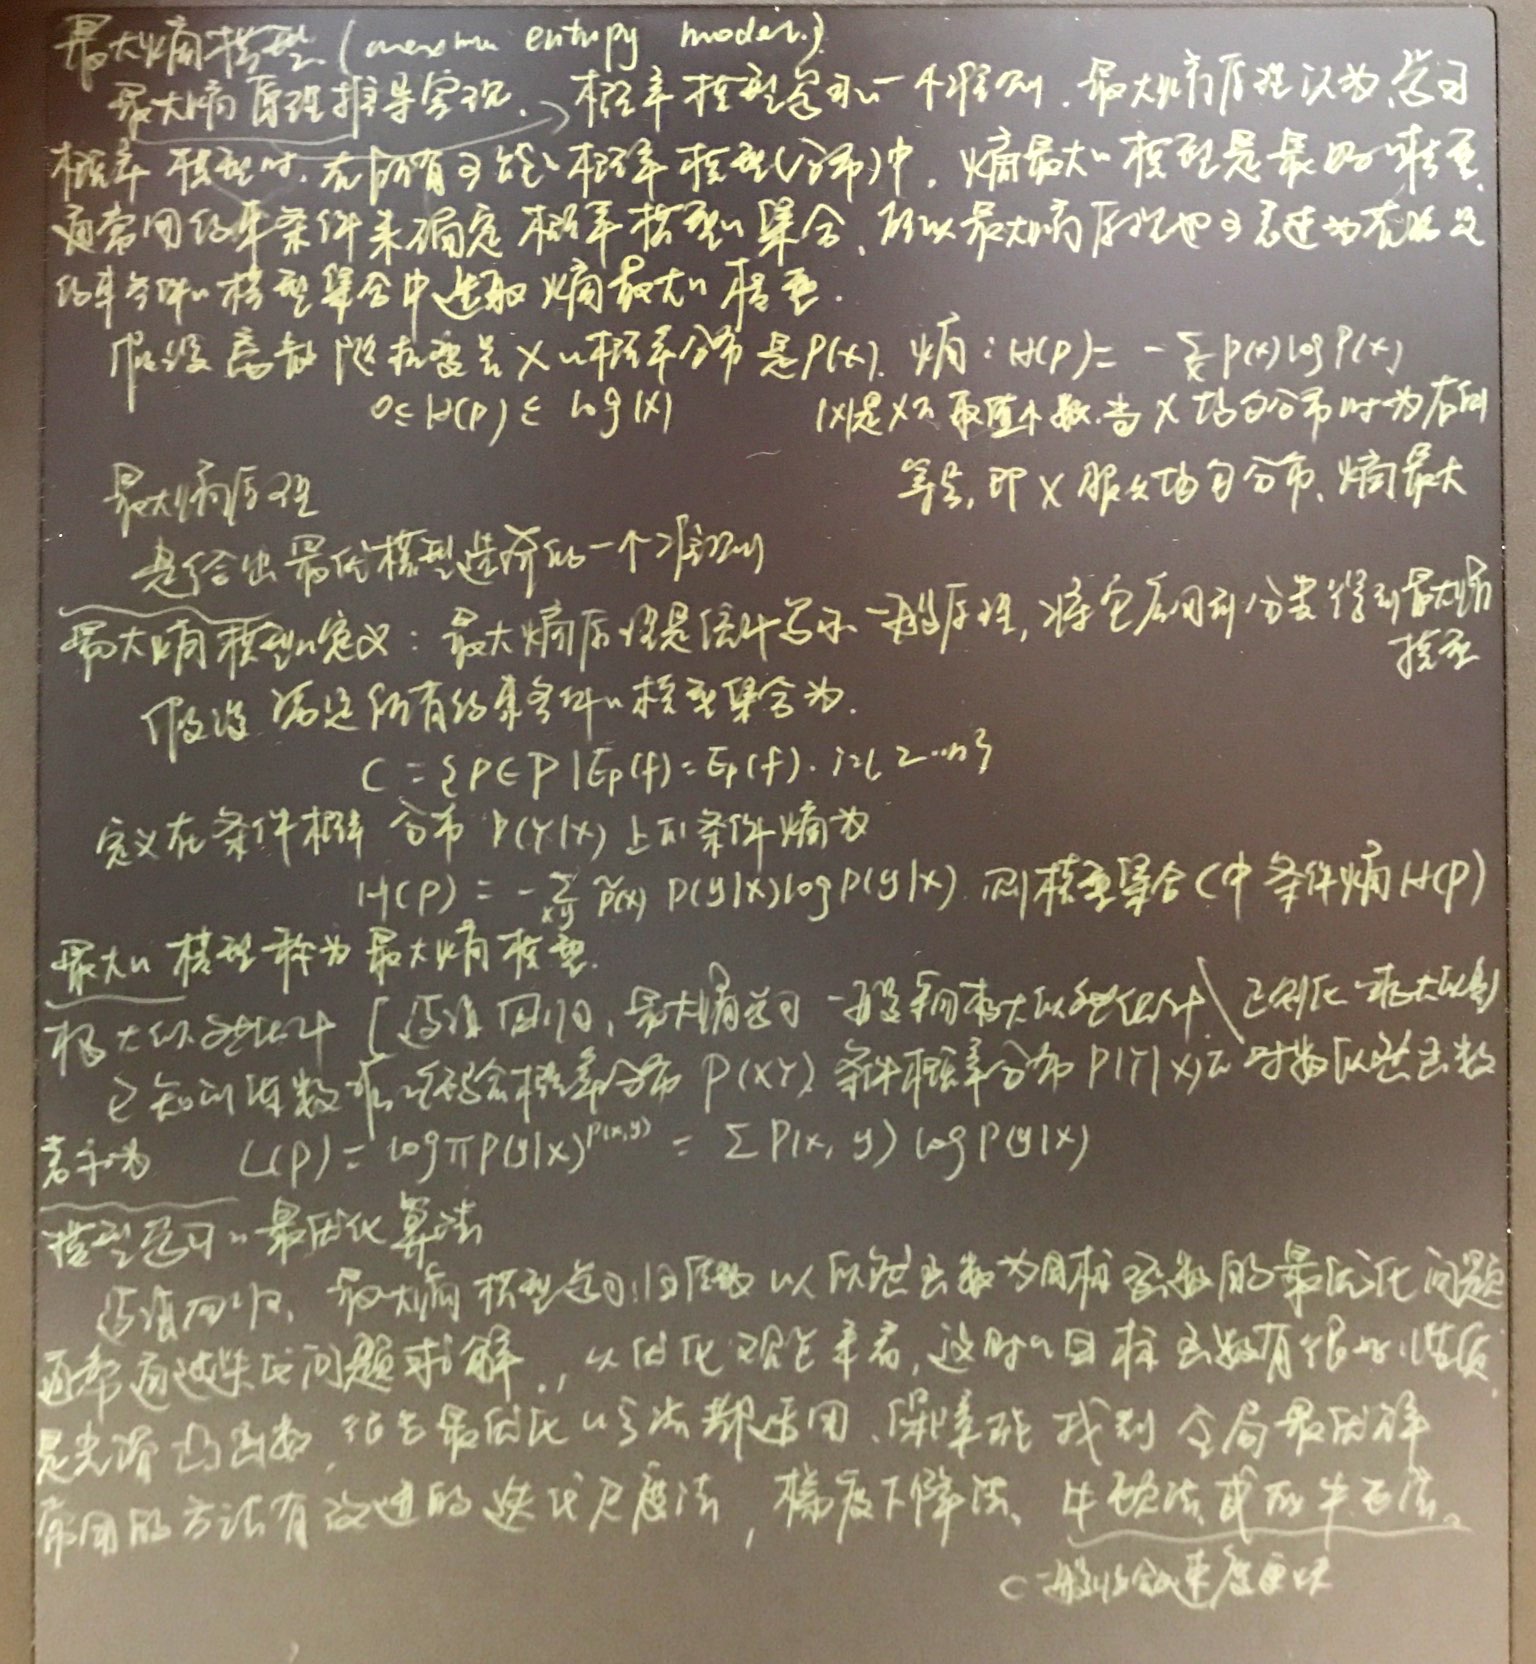 最大熵模型 (maximum entropy model.)
最大熵原理推导实现. 概率模型学习的一个准则. 最大熵原理认为,学习
概率模型时.在所有可能的概率模型(分布)中,熵最大的模型是最好的模型.
通常用约束条件来确定概率模型的集合,所以最大熵原理也可表述为在满足
约束条件的模型集合中选取熵最大的模型.
假设离散随机变量X的概率分布是P(x). 熵:H(P)= -∑P(x)logP(x)
0≤H(P)≤log|X|
|X|是X的取值个数.当X均匀分布时为右侧
等号,即X服从均匀分布、熵最大
最大熵原理
是给出最优模型选择的一个准则
最大熵模型的定义:最大熵原理是统计学习的一般原理,将它应用到分类得到最大熵
模型
假设满足所有约束条件的模型集合为.
C={P∈P|Ep(f)=Ep(f). i=1, 2...n}
定义在条件概率分布P(Y|X)上的条件熵为
H(P) = -∑x,y P̃(x) P(y|x)logP(y|x).则模型集合C中条件熵H(P)
最大的模型称为最大熵模型.
极大似然估计 [逻辑回归,最大熵学习一般采用极大似然估计\ 正则化极大似然]
已知训练数据的经验概率分布P(XY) 条件概率分布P(Y|X)的对数似然函数
表示为 L(P)=log∏P(y|x)^P(x,y) = ∑P(x,y)logP(y|x)
模型学习的最优化算法
逻辑回归、最大熵模型学习归结为以似然函数为目标函数的最优化问题
通常通过迭代问题求解.,从优化观点来看,这时的目标函数有很好的性质.
是光滑凸函数,很多最优化的方法都适用、保障能找到全局最优解
常用的方法有改进的迭代尺度法,梯度下降法、牛顿法或拟牛顿法。
一般收敛速度更快